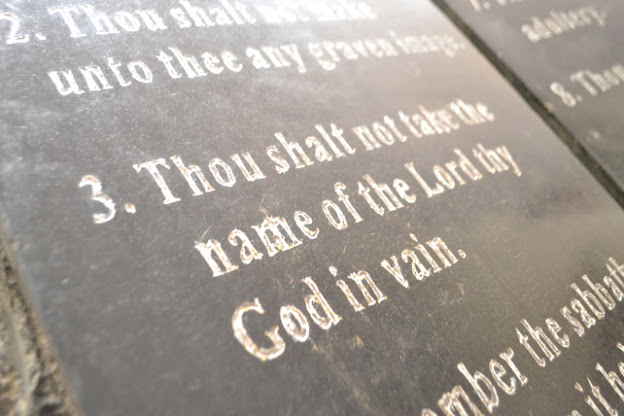 2. Thou shalt not make
unto thee any graven image.
3. Thou shalt not take the
name of the Lord thy
God in vain.
ember the sabbath
it
7.
adultery.
8. Thou